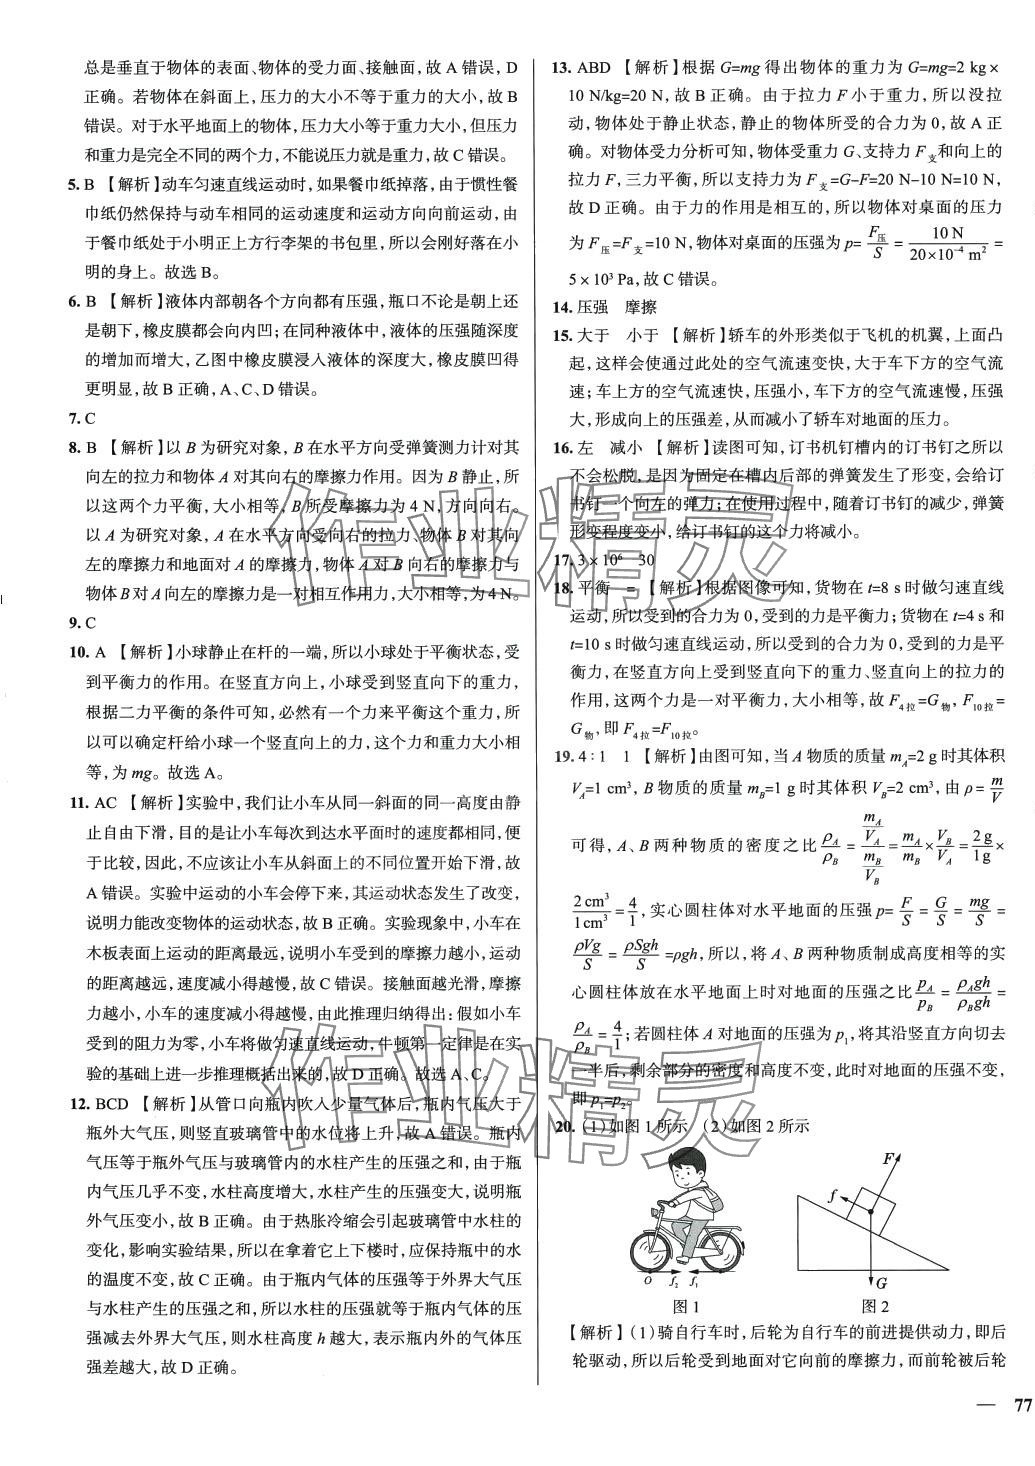 总是垂直于物体的表面、物体的受力面、接触面,故 A 错误,D
正确。若物体在斜面上,压力的大小不等于重力的大小,故 B
错误。对于水平地面上的物体,压力大小等于重力大小,但压力
和重力是完全不同的两个力,不能说压力就是重力,故 C 错误。
5. B 【解析】动车匀速直线运动时,如果餐巾纸掉落,由于惯性餐
巾纸仍然保持与动车相同的运动速度和运动方向向前运动,由
于餐巾纸处于小明正上方行李架的书包里,所以会刚好落在小
明的身上。故选 B。
6. B 【解析】液体内部朝各个方向都有压强,瓶口不论是朝上还
是朝下,橡皮膜都会向内凹;在同种液体中,液体的压强随深度
的增加而增大,乙图中橡皮膜浸入液体的深度大,橡皮膜凹得
更明显,故 B 正确,A、C、D 错误。
7. C
8. B 【解析】以 B 为研究对象,B 在水平方向受弹簧测力计对其
向左的拉力和物体 A 对其向右的摩擦力作用。因为 B 静止,所
以这两个力平衡,大小相等,B 所受摩擦力为 4 N,方向向右。
以 A 为研究对象,A 在水平方向受向右的拉力、物体 B 对其向
左的摩擦力和地面对 A 的摩擦力,物体 A 对 B 向右的摩擦力与
物体 B 对 A 向左的摩擦力是一对相互作用力,大小相等,为 4 N。
9. C
10. A 【解析】小球静止在杆的一端,所以小球处于平衡状态,受
到平衡力的作用。在竖直方向上,小球受到竖直向下的重力,
根据二力平衡的条件可知,必然有一个力来平衡这个重力,所
以可以确定杆给小球一个竖直向上的力,这个力和重力大小相
等,为 mg。故选 A。
11. AC 【解析】实验中,我们让小车从同一斜面的同一高度由静
止自由下滑,目的是让小车每次到达水平面时的速度都相同,便
于比较,因此,不应该让小车从斜面上的不同位置开始下滑,故
A 错误。实验中运动的小车会停下来,其运动状态发生了改变,
说明力能改变物体的运动状态,故 B 正确。实验现象中,小车在
木板表面上运动的距离最远,说明小车受到的摩擦力越小,运动
的距离越远,速度减小得越慢,故 C 错误。接触面越光滑,摩擦
力越小,小车的速度减小得越慢,由此推理归纳得出:假如小车
受到的阻力为零,小车将做匀速直线运动,牛顿第一定律是在实
验的基础上进一步推理概括出来的,故 D 正确。故选 A、C。
12. BCD 【解析】从管口向瓶内吹入少量气体后,瓶内气压大于
瓶外大气压,则竖直玻璃管中的水位将上升,故 A 错误。瓶内
气压等于瓶外气压与玻璃管内的水柱产生的压强之和,由于瓶
内气压几乎不变,水柱高度增大,水柱产生的压强变大,说明瓶
外气压变小,故 B 正确。由于热胀冷缩会引起玻璃管中水柱的
变化,影响实验结果,所以在拿着它上下楼时,应保持瓶中的水
的温度不变,故 C 正确。由于瓶内气体的压强等于外界大气压
与水柱产生的压强之和,所以水柱的压强就等于瓶内气体的压
强减去外界大气压,则水柱高度 h 越大,表示瓶内外的气体压
强差越大,故 D 正确。
13. ABD 【解析】根据 G=mg 得出物体的重力为 G=mg=2 kg×
10 N/kg=20 N,故 B 正确。由于拉力 F 小于重力,所以没拉
动,物体处于静止状态,静止的物体所受的合力为 0,故 A 正
确。对物体受力分析可知,物体受重力 G、支持力 F支和向上的
拉力 F,三力平衡,所以支持力为 F支=G-F=20 N-10 N=10 N,
故 D 正确。由于力的作用是相互的,所以物体对桌面的压力
为 F压=F支=10 N,物体对桌面的压强为 p=F压/S=10 N/(20×10⁻⁴ m²)=
5×10³ Pa,故 C 错误。
14. 压强 摩擦
15. 大于 小于 【解析】轿车的外形类似于飞机的机翼,上面凸
起,这样会使通过此处的空气流速变快,大于车下方的空气流
速;车上方的空气流速快,压强小,车下方的空气流速慢,压强
大,形成向上的压强差,从而减小了轿车对地面的压力。
16. 左 减小 【解析】读图可知,订书机钉槽内的订书钉之所以
不会松脱,是因为固定在槽内后部的弹簧发生了形变,会给订
书钉一个向左的弹力;在使用过程中,随着订书钉的减少,弹簧
形变程度变小,给订书钉的这个力将减小。
17. 3×10⁶ 30
18. 平衡 = 【解析】根据图像可知,货物在 t=8 s 时做匀速直线
运动,所以受到的合力为 0,受到的力是平衡力;货物在 t=4 s 和
t=10 s 时做匀速直线运动,所以受到的合力为 0,受到的力是平
衡力,在竖直方向上受到竖直向下的重力、竖直向上的拉力的
作用,这两个力是一对平衡力,大小相等,故 F4拉=G物,F10拉=
G物,即 F4拉=F10拉。
19. 4∶1 1 【解析】由图可知,当 A 物质的质量 mA=2 g 时其体积
VA=1 cm³,B 物质的质量 mB=1 g 时其体积 VB=2 cm³,由 ρ=m/V
可得,A、B 两种物质的密度之比 ρA/ρB=(mA/VA)/(mB/VB)=mA/mB×VB/VA=2 g/1 g×
2 cm³/1 cm³=4/1,实心圆柱体对水平地面的压强 p=F/S=G/S=mg/S=
ρVg/S=ρSgh/S=ρgh,所以,将 A、B 两种物质制成高度相等的实
心圆柱体放在水平地面上时对地面的压强之比 pA/pB=ρAgh/ρBgh=
ρA/ρB=4/1;若圆柱体 A 对地面的压强为 p₁,将其沿竖直方向切去
一半后,剩余部分的密度和高度不变,此时对地面的压强不变,
即 p₁=p₂。
20. (1)如图 1 所示 (2)如图 2 所示
O f₂ f₁
图 1
F
f
G
图 2
【解析】(1)骑自行车时,后轮为自行车的前进提供动力,即后
轮驱动,所以后轮受到地面对它向前的摩擦力,而前轮被后轮
— 77
作业精灵
作业精灵